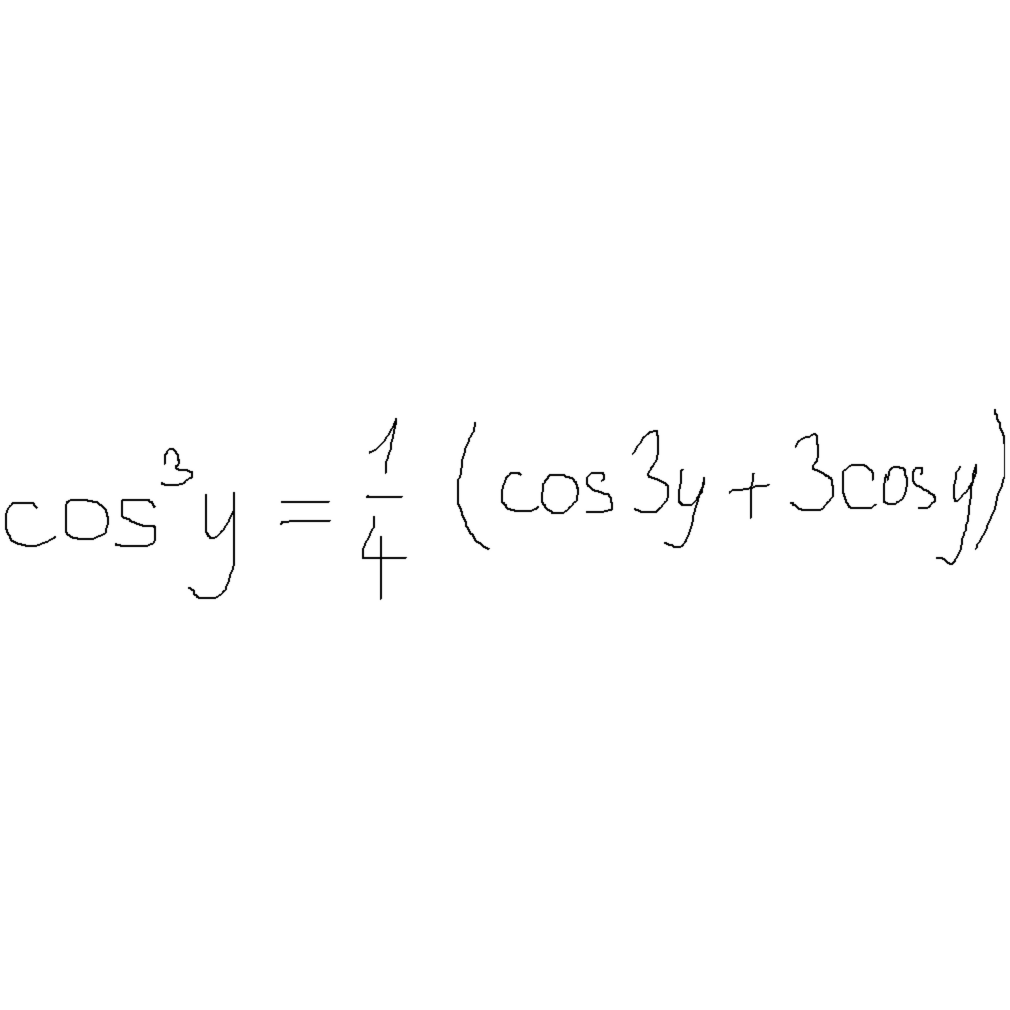 cos³y = 1/4 (cos3y + 3cosy)